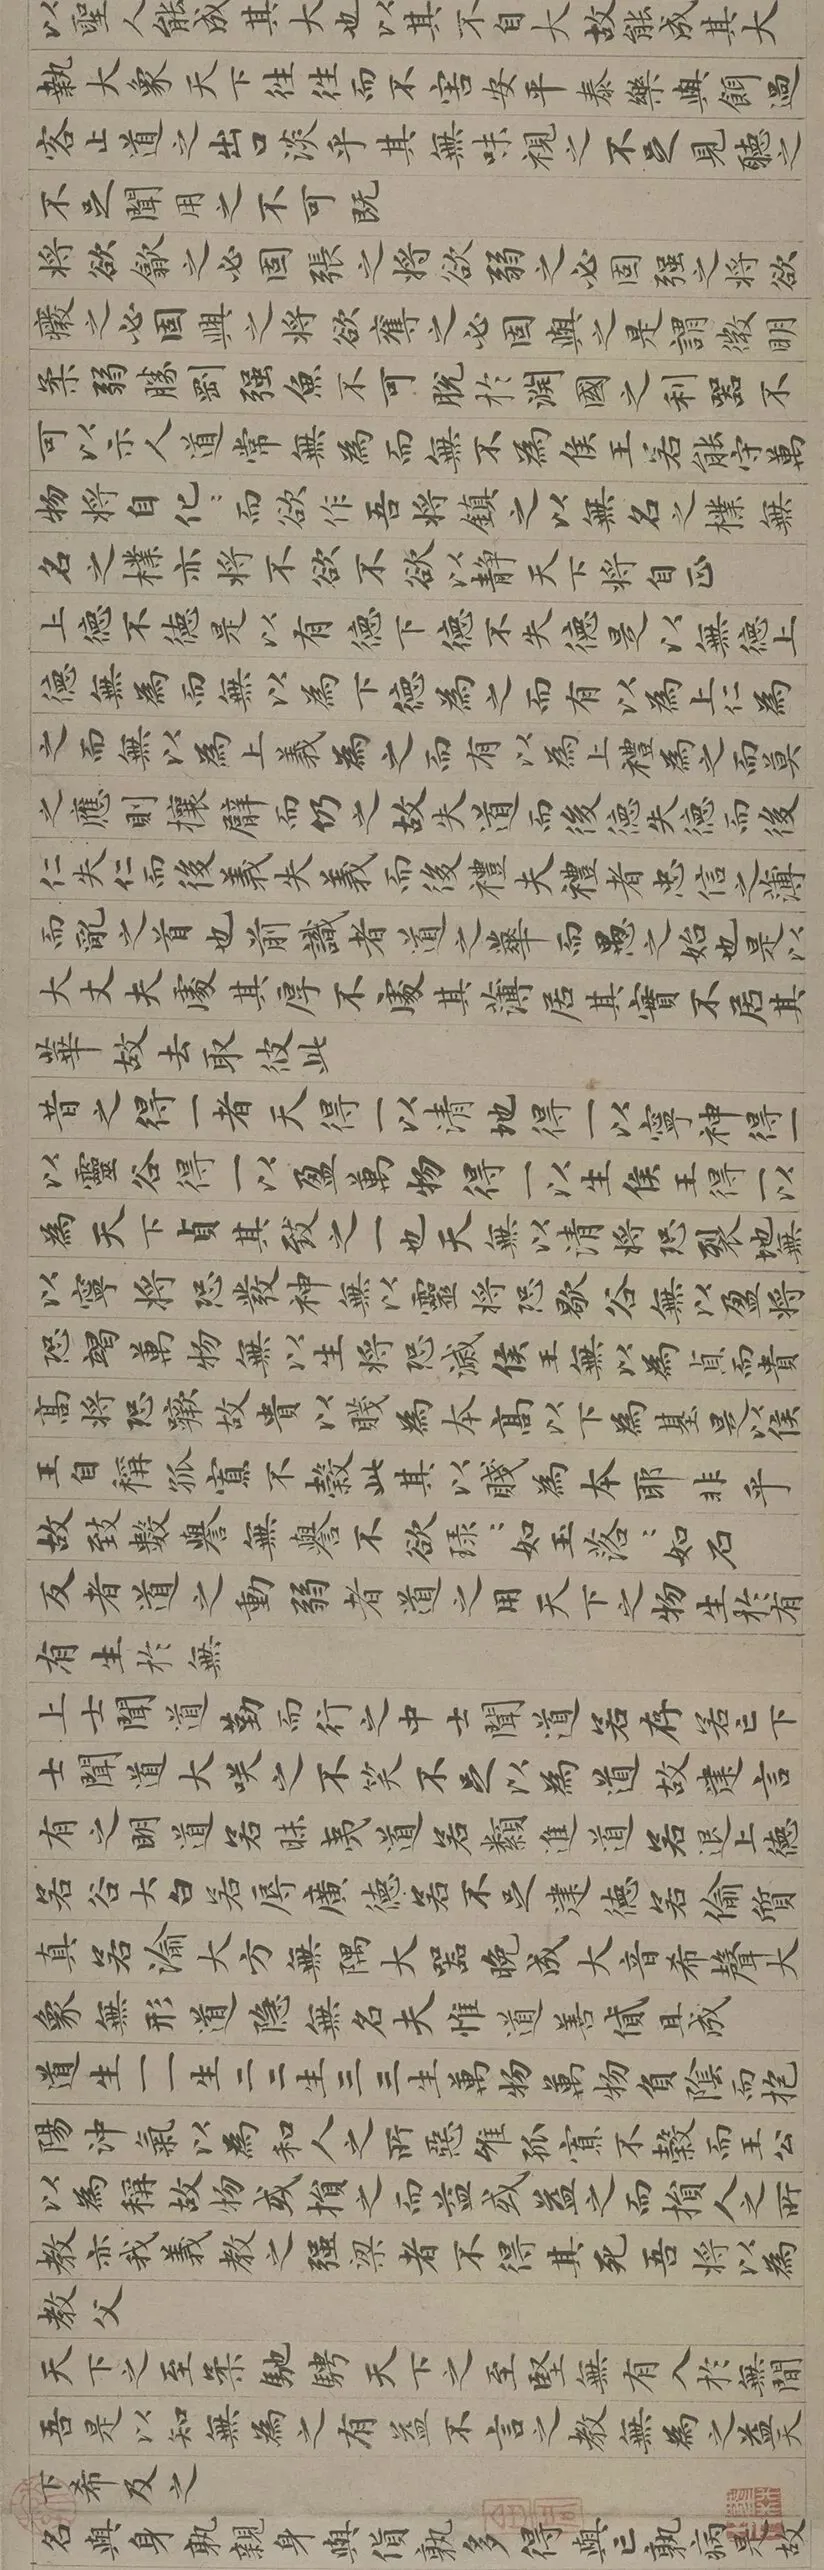 以聖人能成其大也以其不自大故能成其大
執大象天下往往而不害安平泰樂與餌過
客止道之出口淡乎其無味視之不足見聽之
不足聞用之不可既
將欲歙之必固張之將欲弱之必固强之將欲
癈之必固興之將欲奪之必固與之是謂微明
柔弱勝剛强魚不可脫於淵國之利器不
可以示人道常無為而無不為侯王若能守萬
物將自化〻而欲作吾將鎮之以無名之樸無
名之樸亦將不欲不欲以靜天下將自正
上德不德是以有德下德不失德是以無德上
德無為而無以為下德為之而有以為上仁為
之而無以為上義為之而有以為上禮為之而莫
之應則攘臂而仍之故失道而後德失德而後
仁失仁而後義失義而後禮夫禮者忠信之薄
而亂之首也前識者道之華而愚之始也是以
大丈夫處其厚不處其薄居其實不居其
華故去取彼此
昔之得一者天得一以清地得一以寧神得一
以靈谷得一以盈萬物得一以生侯王得一以
為天下貞其致之一也天無以清將恐裂地無
以寧將恐發神無以靈將恐歇谷無以盈將
恐竭萬物無以生將恐滅侯王無以為貞而貴
高將恐蹶故貴以賤為本高以下為基是以侯
王自稱孤寡不穀此其以賤為本耶非乎
故致數譽無譽不欲琭〻如玉落〻如石
反者道之動弱者道之用天下之物生於有
有生於無
上士聞道勤而行之中士聞道若存若亡下
士聞道大咲之不笑不足以為道故建言
有之明道若昧夷道若纇進道若退上德
若谷大白若辱廣德若不足建德若偷質
真若渝大方無隅大器晚成大音希聲大
象無形道隱無名夫惟道善貸且成
道生一一生二二生三三生萬物萬物負陰而抱
陽沖氣以為和人之所惡惟孤寡不穀而王公
以為稱故物或損之而益或益之而損人之所
教亦我義教之强梁者不得其死吾將以為
教父
天下之至柔馳騁天下之至堅無有入於無間
吾是以知無為之有益不言之教無為之益天
下希及之
名與身孰親身與貨孰多得與亡孰病是故